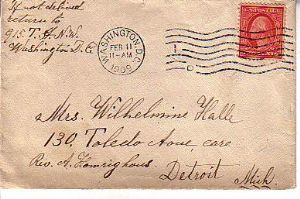 If not delived
return to
915. T. st. N.W.
Washington D.C.
WASHINGTON, D.C.
FEB 11
11-AM
1909
Mrs. Wilhelmine Halle
130. Toledo Aove, care
Rev. A. Komrighous
Detroit
Mich.